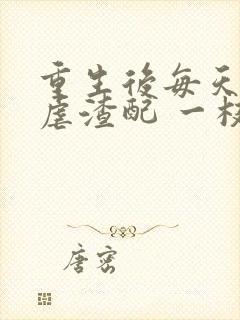 重生後每天
虐渣配 一枝
唐密